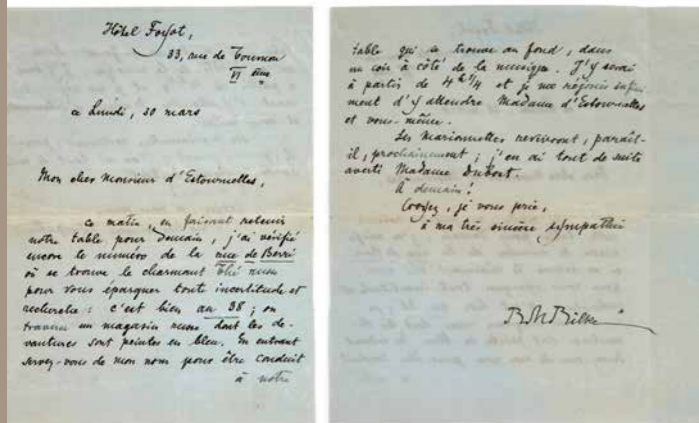 Hôtel Foyot,
33, rue de Tournon
VI ème
ce Lundi, 30 mars
Mon cher Monsieur d'Estournelles,
ce matin, en faisant retenir
notre table pour demain, j'ai vérifié
encore le numéro de la rue de Berri
où se trouve le charmant Thé russe
pour vous épargner tout incertitude et
recherche : c'est bien au 38 ; on
traverse un magasin russe dont les de-
vantures sont peintes en bleu. En entrant
servez-vous de mon nom pour être conduit
à notre
table qui se trouve au fond, dans
un coin à côté de la musique. J'y serai
à partir de 4 h 1/4 et je me réjouis infini-
ment d'y attendre Madame d'Estournelles
et vous-même.
Les Marionnettes revivront, paraît-
il, prochainement ; j'en ai tout de suite
averti Madame Dubost.
à demain !
Croyez, je vous prie,
à ma très sincère sympathie
RMRilke